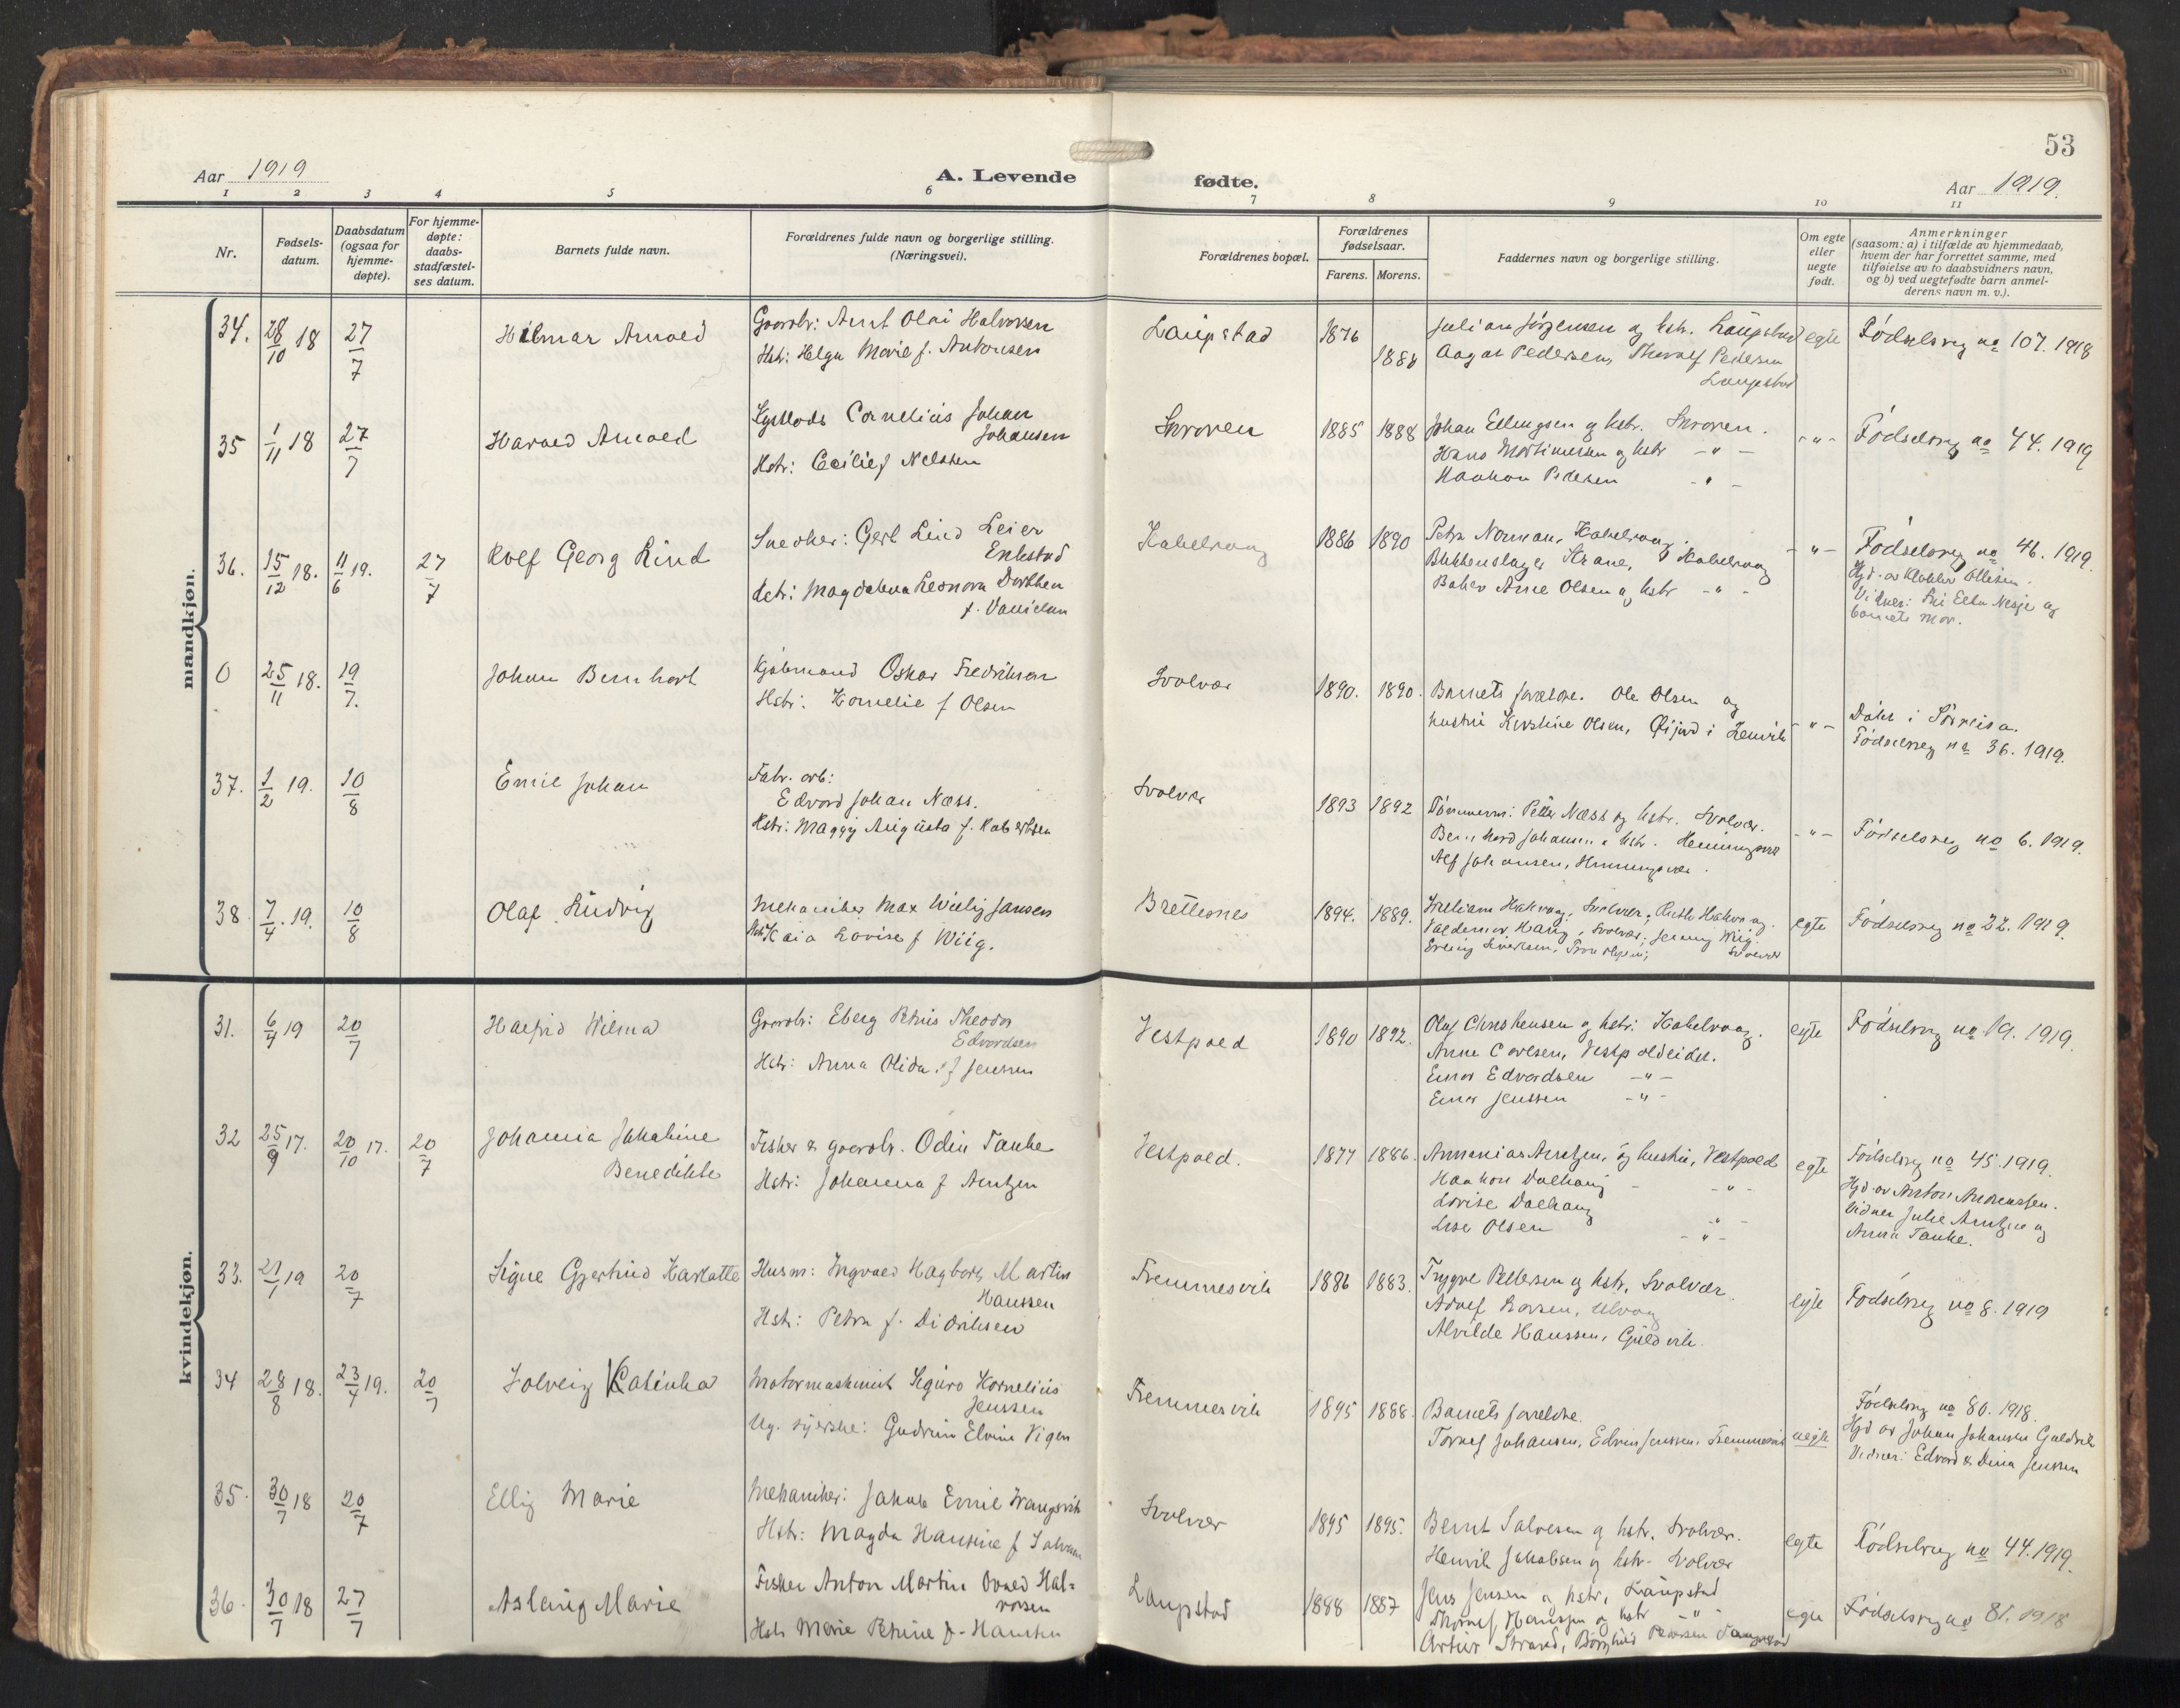 53
Aar 1919
A. Levende
fødte.
Aar 1919.
1 2 3 4 5 6 7 8 9 10 11
Nr.
Fødsels-
datum.
Daabsdatum
(ogsaa for
hjemme-
døpte).
For hjemme-
døpte:
daabs-
stadfæstel-
ses datum.
Barnets fulde navn.
Forældrenes fulde navn og borgerlige stilling.
(Næringsvei).
Forældrenes bopæl.
Forældrenes
fødselsaar.
Farens. Morens.
Faddernes navn og borgerlige stilling.
Om egte
eller
uegte
født.
Anmerkninger
(saasom: a) i tilfælde av hjemmedaab,
hvem der har forrettet samme, med
tilføielse av to daabsvidners navn,
og b) ved uegtefødte barn anmel-
derens navn m. v.).
mandkjøn.
34. 28/10 18 27/7 Hilmar Arnold
Gaardbr: Arnt Olai Halvorsen
Hstr: Helga Marie f. Antonsen
Laupstad 1876 1888
Julian Jørgensen og hstr. Laupstad
Aagot Pedersen, Thoralf Pedersen
Laupstad
egte Fødselsreg no 107. 1918
35 1/11 18 27/7 Harald Arnold
Kystlods Cornelius Johan
Johansen
Hstr: Cecilie f Nelssen
Skroven 1885 1888
Johan Ellingsen og hstr. Skroven.
Hans Mortinussen og hstr - " -
Haakon Pedersen - " -
- " - Fødselsreg no 44. 1919
36. 15/12 18. 11/6 19. 27/7 Rolf Georg Lind
Snedker: Gerh Lind Leier
Enkestad
Hstr: Magdalena Leonora Dorthea
f. Danielsen
Kabelvaag 1886 1890
Petra Norman, Kabelvaag.
Blikkenslager Krane, Kabelvaag
Baker Arne Olsen og hstr - " -
- " - Fødselsreg no 46. 1919.
Hjd. av Klokker Ottesen.
Vidner: Frk Ella Nesje og
barnets mor.
0 25/11 18. 19/7. Johan Bernhart
Kjøbmand Oskar Fredriksen
Hstr: Kornelie f Olsen
Svolvær 1890. 1890.
Barnets forældre. Ole Olsen og
hustru Kirstine Olsen, Øijord i Lenvik
- " - Døbt i Sørreisa.
Fødselsreg no 36. 1919.
37. 1/2 19. 10/8 Emil Johan
Fabr. arb:
Edvard Johan Næss.
Hstr: Maggy Augusta f. Robertsen
Svolvær 1893 1892
Tømmerm: Petter Næss og hstr. Svolvær.
Bernhard Johansen og hstr. Henningsvær
Alf Johansen, Henningsvær.
- " - Fødselsreg no 6. 1919.
38 7/4. 19. 10/8 Olaf Ludvig
Mekaniker Max Willy Jansen
Hstr Kaia Lovise f Wiig.
Brettesnes 1894. 1889.
William Hakvaag, Svolvær, Ruth Hakvaag.
Valdemar Haug, Svolvær, Jenny Wiig.
Erling Sivertsen, Trondhjem, Svolvær
egte Fødselsreg no 22. 1919.
kvindekjøn.
31. 6/4 19 20/7 Halfrid Wilma
Gaardbr: Eberg Petrus Theodor
Edvardsen
Hstr: Anna Olida f Jenssen
Vestpold 1890 1892.
Olaf Christensen og hstr: Kabelvaag.
Anne Carlsen, Vestpoldeidet.
Einar Edvardsen - " -
Einar Jenssen - " -
egte Fødselsreg no 19. 1919.
32 25/9 17. 20/10 17. 20/7 Johanna Jakobine
Benedikte
Fisker & gaardbr. Odin Tanke
Hstr: Johanna f Arntzen
Vestpold. 1877 1886.
Annanias Arntzen, og hustru, Vestpold
Haakon Dalhaug - " -
Lovise Dalhaug - " -
Lise Olsen - " -
egte Fødselsreg no 45. 1919.
Hjd. av Anton Andreassen.
Vidner Julie Arntzen og
Anna Tanke.
33. 21/1 19 20/7 Signe Gjertrud Karlotte
Husm: Ingvald Hagbart Martin
Hanssen
Hstr: Petra f. Didriksen
Fremmesvik 1886 1883.
Trygve Pettersen og hstr, Svolvær.
Adolf Larsen, Ulvaag
Alvilde Hanssen, Guldvik.
egte Fødselsreg no 8. 1919
34 28/8 18. 23/4 19. 20/7 Solveig Katinka
Motormaskinist Sigurd Kornelius
Jenssen
Ug. syerske: Gudrun Elvine Vigen
Fremmesvik 1895 1888.
Barnets forældre.
Toralf Johansen, Edvin Jenssen, Fremmesvik
uegte Fødselsreg no 80. 1918.
Hjd av Johan Johansen Guldvik
Vidner: Edvard & Dina Jenssen
35. 30/7 18 20/7 Elly Marie
Mekaniker: Jakob Emil Vangsvik
Hstr: Magda Hansine f Salvesen
Svolvær 1895 1895.
Bernt Salvesen og hstr. Svolvær.
Henrik Jakobsen og hstr. Svolvær
egte Fødselsreg no 44. 1919.
36. 30/7 18 27/7 Aslaug Marie
Fisker Anton Martin Ovald Hal=
vorsen
Hstr Marie Petrine f. Hansen
Laupstad 1888 1887
Jens Jensen og hstr, Laupstad
Thoralf Hanssen og hstr - " -
Artur Strand, Borghild Pedersen Laupstad
egte Fødselsreg no 81. 1918